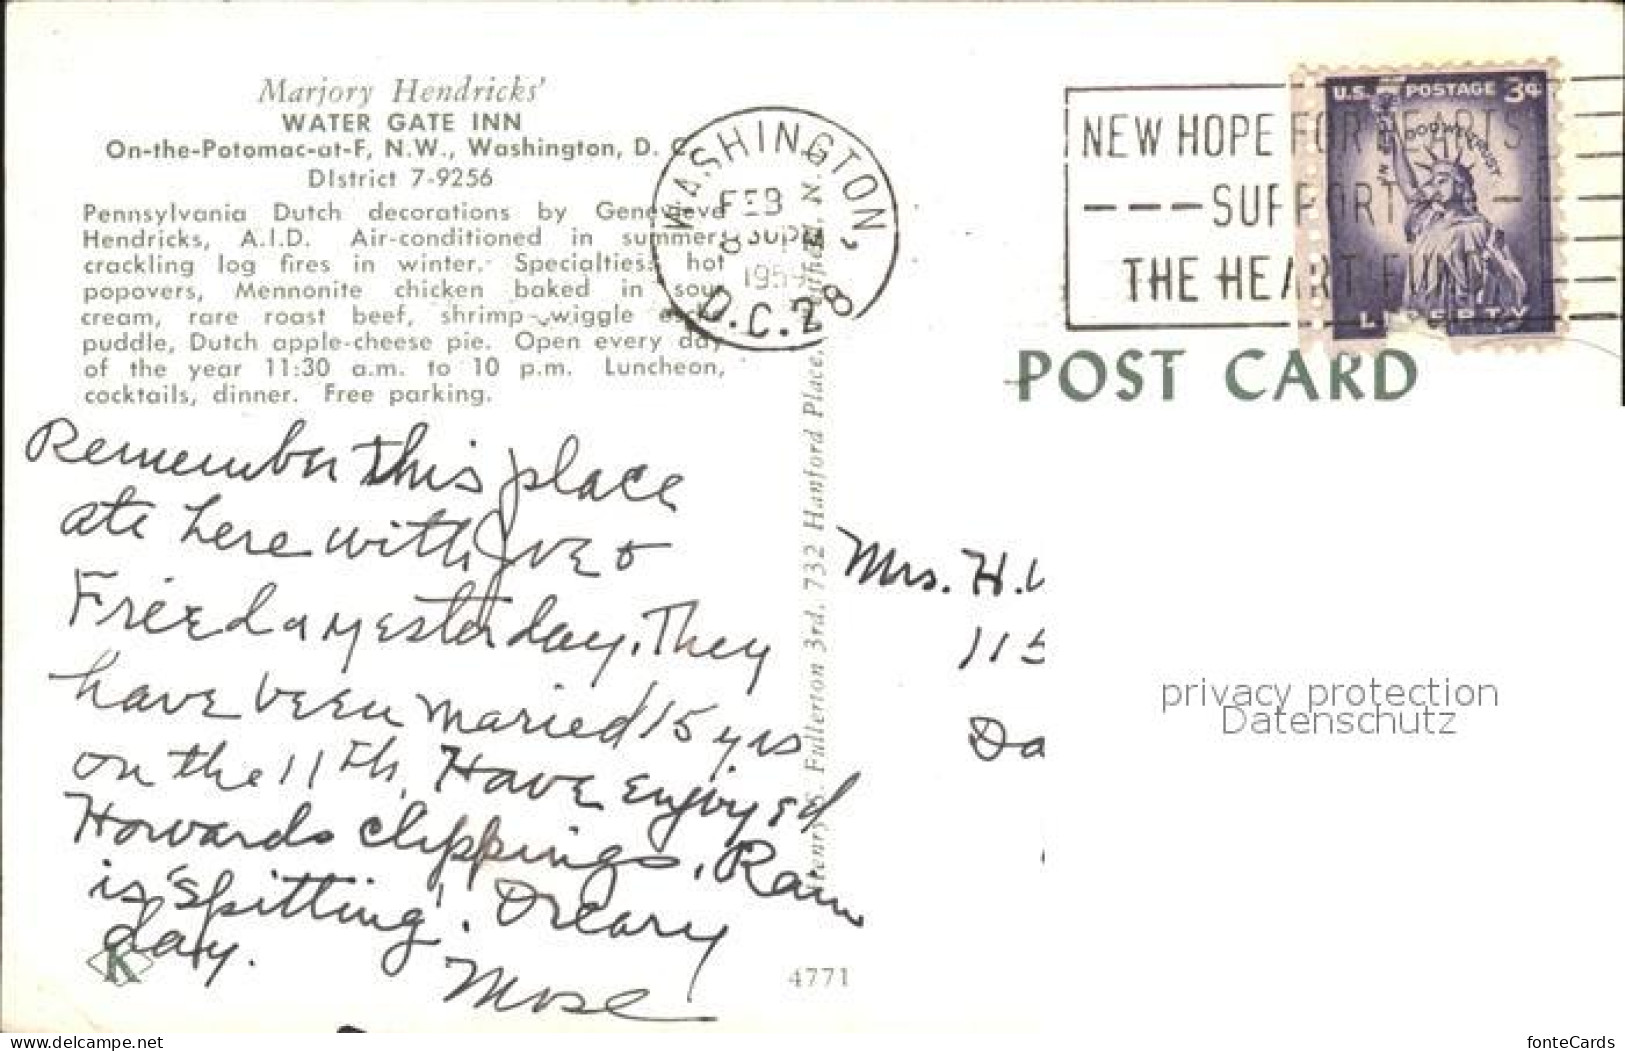 Marjory Hendricks'
WATER GATE INN
On-the-Potomac-at-F, N.W., Washington, D. C.
DIstrict 7-9256
Pennsylvania Dutch decorations by Genevieve
Hendricks, A.I.D. Air-conditioned in summer;
crackling log fires in winter. Specialties: hot
popovers, Mennonite chicken baked in sour
cream, rare roast beef, shrimp wiggle
puddle, Dutch apple-cheese pie. Open every day
of the year 11:30 a.m. to 10 p.m. Luncheon,
cocktails, dinner. Free parking.
Remember this place
ate here with Joe &
Frieda yesterday. They
have been maried 15 yrs
on the 11th. Have enjoyed
Howards clippings. Rain
is 'spitting'. Dreary
day.
Mose
K
4771
Henry S. Fullerton 3rd, 732 Hanford Place, N.
WASHINGTON,
FEB
8 30PM
195
D.C. 28
NEW HOPE FOR HEARTS
---SUPPORT---
THE HEART FUND
U.S. POSTAGE 3¢
IN GOD WE TRUST
LIBERTY
POST CARD
Mrs. H.
115
Da
privacy protection
Datenschutz
www.delcampe.net
fonteCards